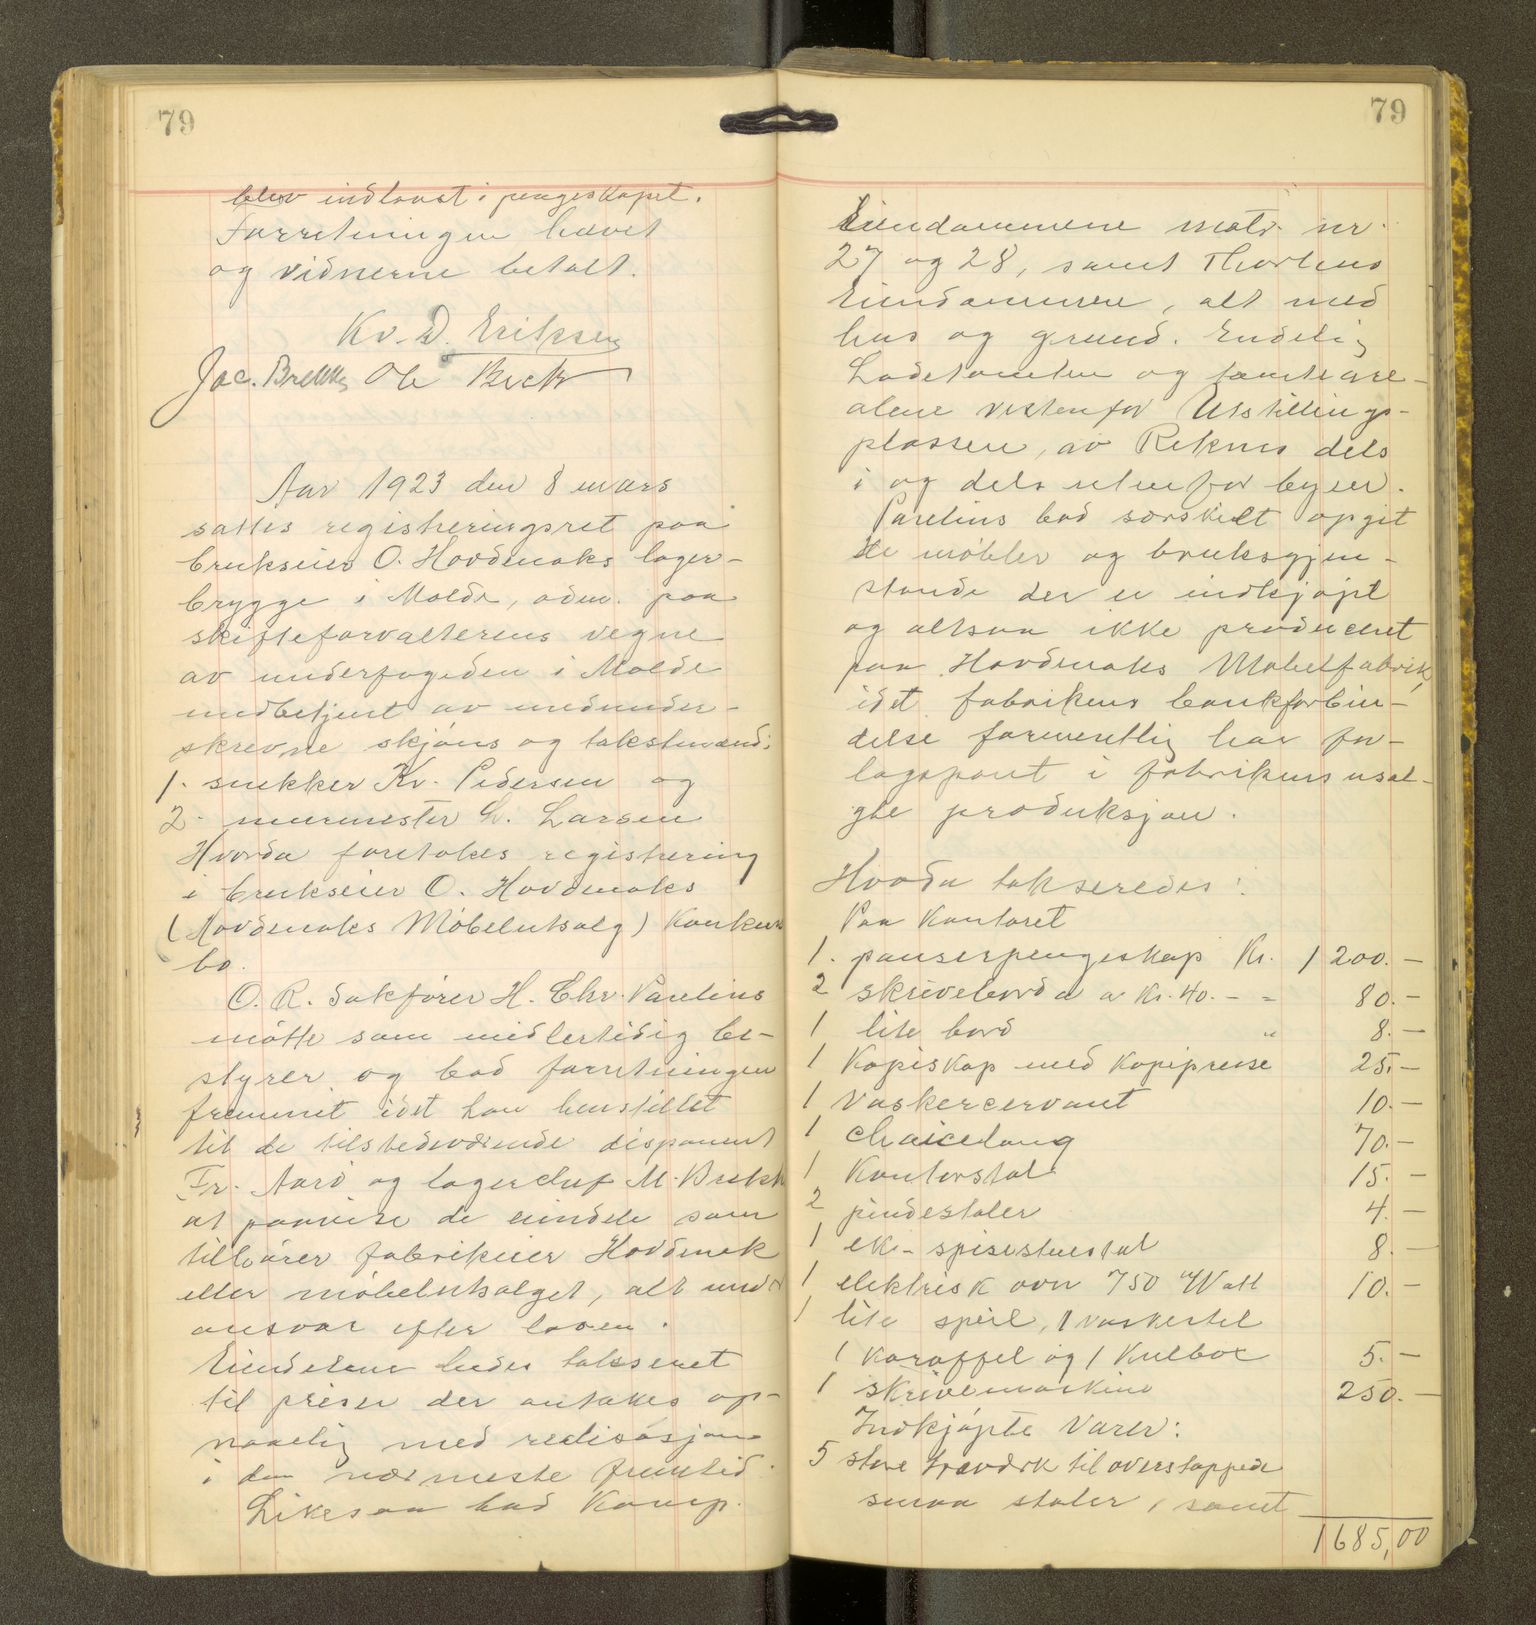 79
blev indlaast i pengeskapet.
Forretningen hævet
og vidnerne betalt.
Kv. D. Eriksen
Jac. Brekke Ole Beck
Aar 1923 den 8 mars
sattes registreringsret paa
brukseier O. Hovdenaks lager-
brygge i Molde, adm. paa
skifteforvalterens vegne
av underfogeden i Molde
medbetjent av medunder-
skrevne skjøns og takstmænd:
1. snekker Kr. Pedersen og
2. murmester L. Larsen
Hvorda foretokes registrering
i brukseier O. Hovdenaks
(Hovdenaks Møbelutsalg) konkurs
bo.
O. R. Sakfører H. Chr. Paulins
møtte som midlertidig be-
styrer og bad forretningen
fremmet idet han henstillet
til de tilstedeværende disponent
Fr. Aarø og lagerchef M. Brekke
at paavise de eiendele som
tilhører fabrikeier Hovdenak
eller møbelutsalget, alt under
ansvar efter loven.
Eiendelene bedes taksert
til priser der antakes op-
naaelig med realisasjon
i den nærmeste fremtid.
Likesaa bad Komp.
79
Eiendommene matr. nr.
27 og 28, samt
Eiendommene, alt med
hus og grund. Endelig
Ladetomten og tomteare-
alene vestenfor Utstillings-
plassen, av Reknes dels
i og dels utenfor byen.
Paulins bad særskilt opgit
de møbler og bruksgjen-
stande der er indkjøpt
og altsaa ikke produceret
paa Hovdenaks Møbelfabrik,
idet fabrikens bankforbin-
delse formentlig har for-
lagspant i fabrikens usol-
gte produksjon.
Hvorda takseredes:
Paa Kontoret
1. panserpengeskap Kr. 1200.-
2 skrivebord a Kr. 40.- - 80.-
1 lite bord " 8.-
1 Kopiskap med Kopipresse 25.-
1 Vaskerservant 10.-
1 chaiselong 70.-
1 Kontorstol 15.-
2 pindestoler 4.-
1 eke-spisestuestol 8.-
1 elektrisk ovn 750 Watt 10.-
1 lite speil, 1 vaskestel
1 Karaffel og 1 Kulbox 5.-
1 skrivemaskine 250.-
Indkjøpte Varer:
5 store træverk til overstoppede
smaa stoler, samt
1685,00